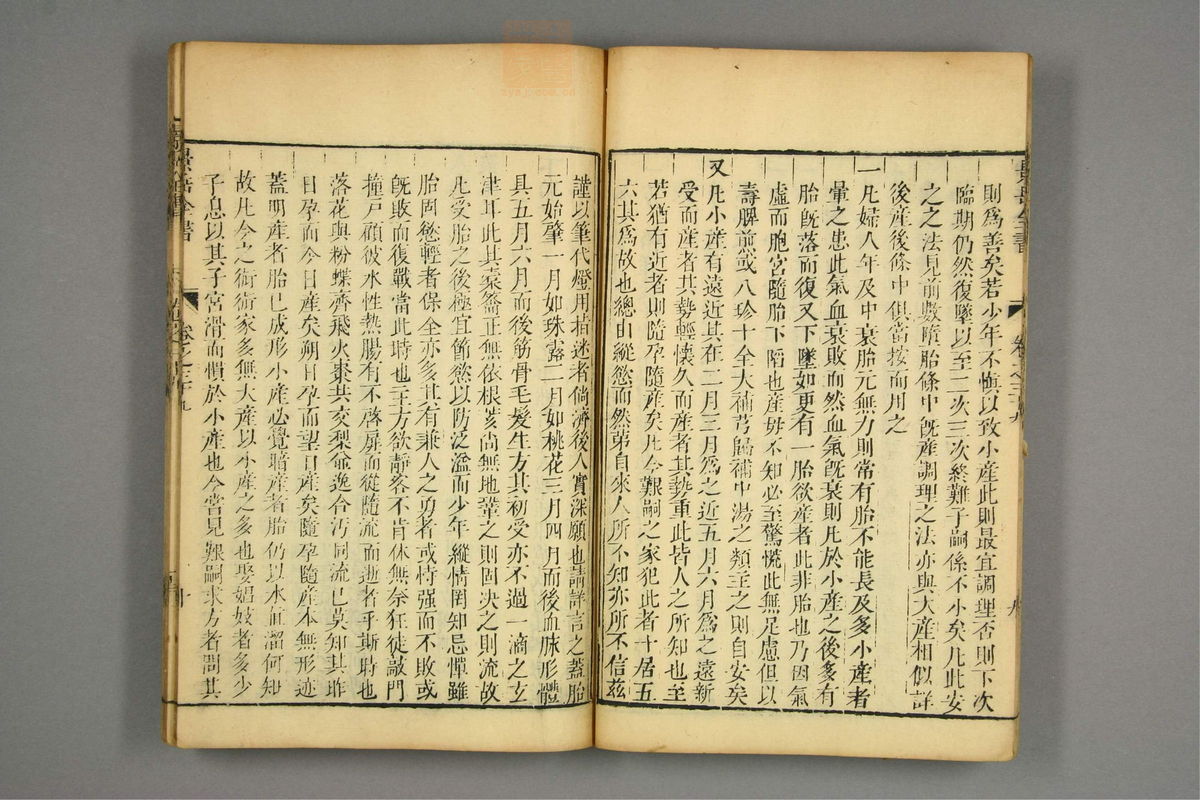 則爲善矣若少年不愼以致小產此則最宜調理否則下次
臨期仍然復墜以至二次三次終難子嗣係不小矣凡此安
之之法見前數墮胎條中旣產調理之法亦與大產相似詳
後產後條中俱當按而用之
一凡婦人年及中衰胎元無力則常有胎不能長及多小產者
暈之患此氣血衰敗而然血氣旣衰則凡於小產之後多有
胎旣落而復又下墜如更有一胎欲產者此非胎也乃因氣
虛而胞宮隨胎下陷也產母不知必至驚慌此無足慮但以
壽脾煎或八珍十全大補芎歸補中湯之類主之則自安矣
又凡小產有遠近其在二月三月爲之近五月六月爲之遠新
受而產者其勢輕懷久而產者其勢重此皆人之所知也至
若猶有近者則隨孕隨產矣凡今艱嗣之家犯此者十居五
六其爲故也總由縱慾而然第自來人所不知亦所不信茲
謹以筆代燈用指迷者倘濟後人實深願也請詳言之蓋胎
元始肇一月如珠露二月如桃花三月四月而後血脉形體
具五月六月而後筋骨毛髮生方其初受亦不過一滴之玄
津耳此其橐籥正無依根荄尚無地鞏之則固決之則流故
凡受胎之後極宜節慾以防泛溢而少年縱情罔知忌憚雖
胎固慾輕者保全亦多其有兼人之勇者或恃强而不敗或
旣敗而復戰當此時也主方欲靜客不肯休無奈狂徒敲門
撞戸顧彼水性熱腸有不啓扉而從隨流而逝者乎斯時也
落花與粉蝶齊飛火棗共交梨並逸合汚同流已莫知其昨
日孕而今日產矣朔日孕而望日產矣隨孕隨產本無形迹
蓋明產者胎已成形小產必覺暗產者胎仍以水直溜何知
故凡今之衒衒家多無大產以小產之多也娶娼妓者多少
子息以其子宮滑而慣於小產也今嘗見艱嗣求方者問其
景岳全書
卷之三十九
十
景岳全書
卷之三十九
九